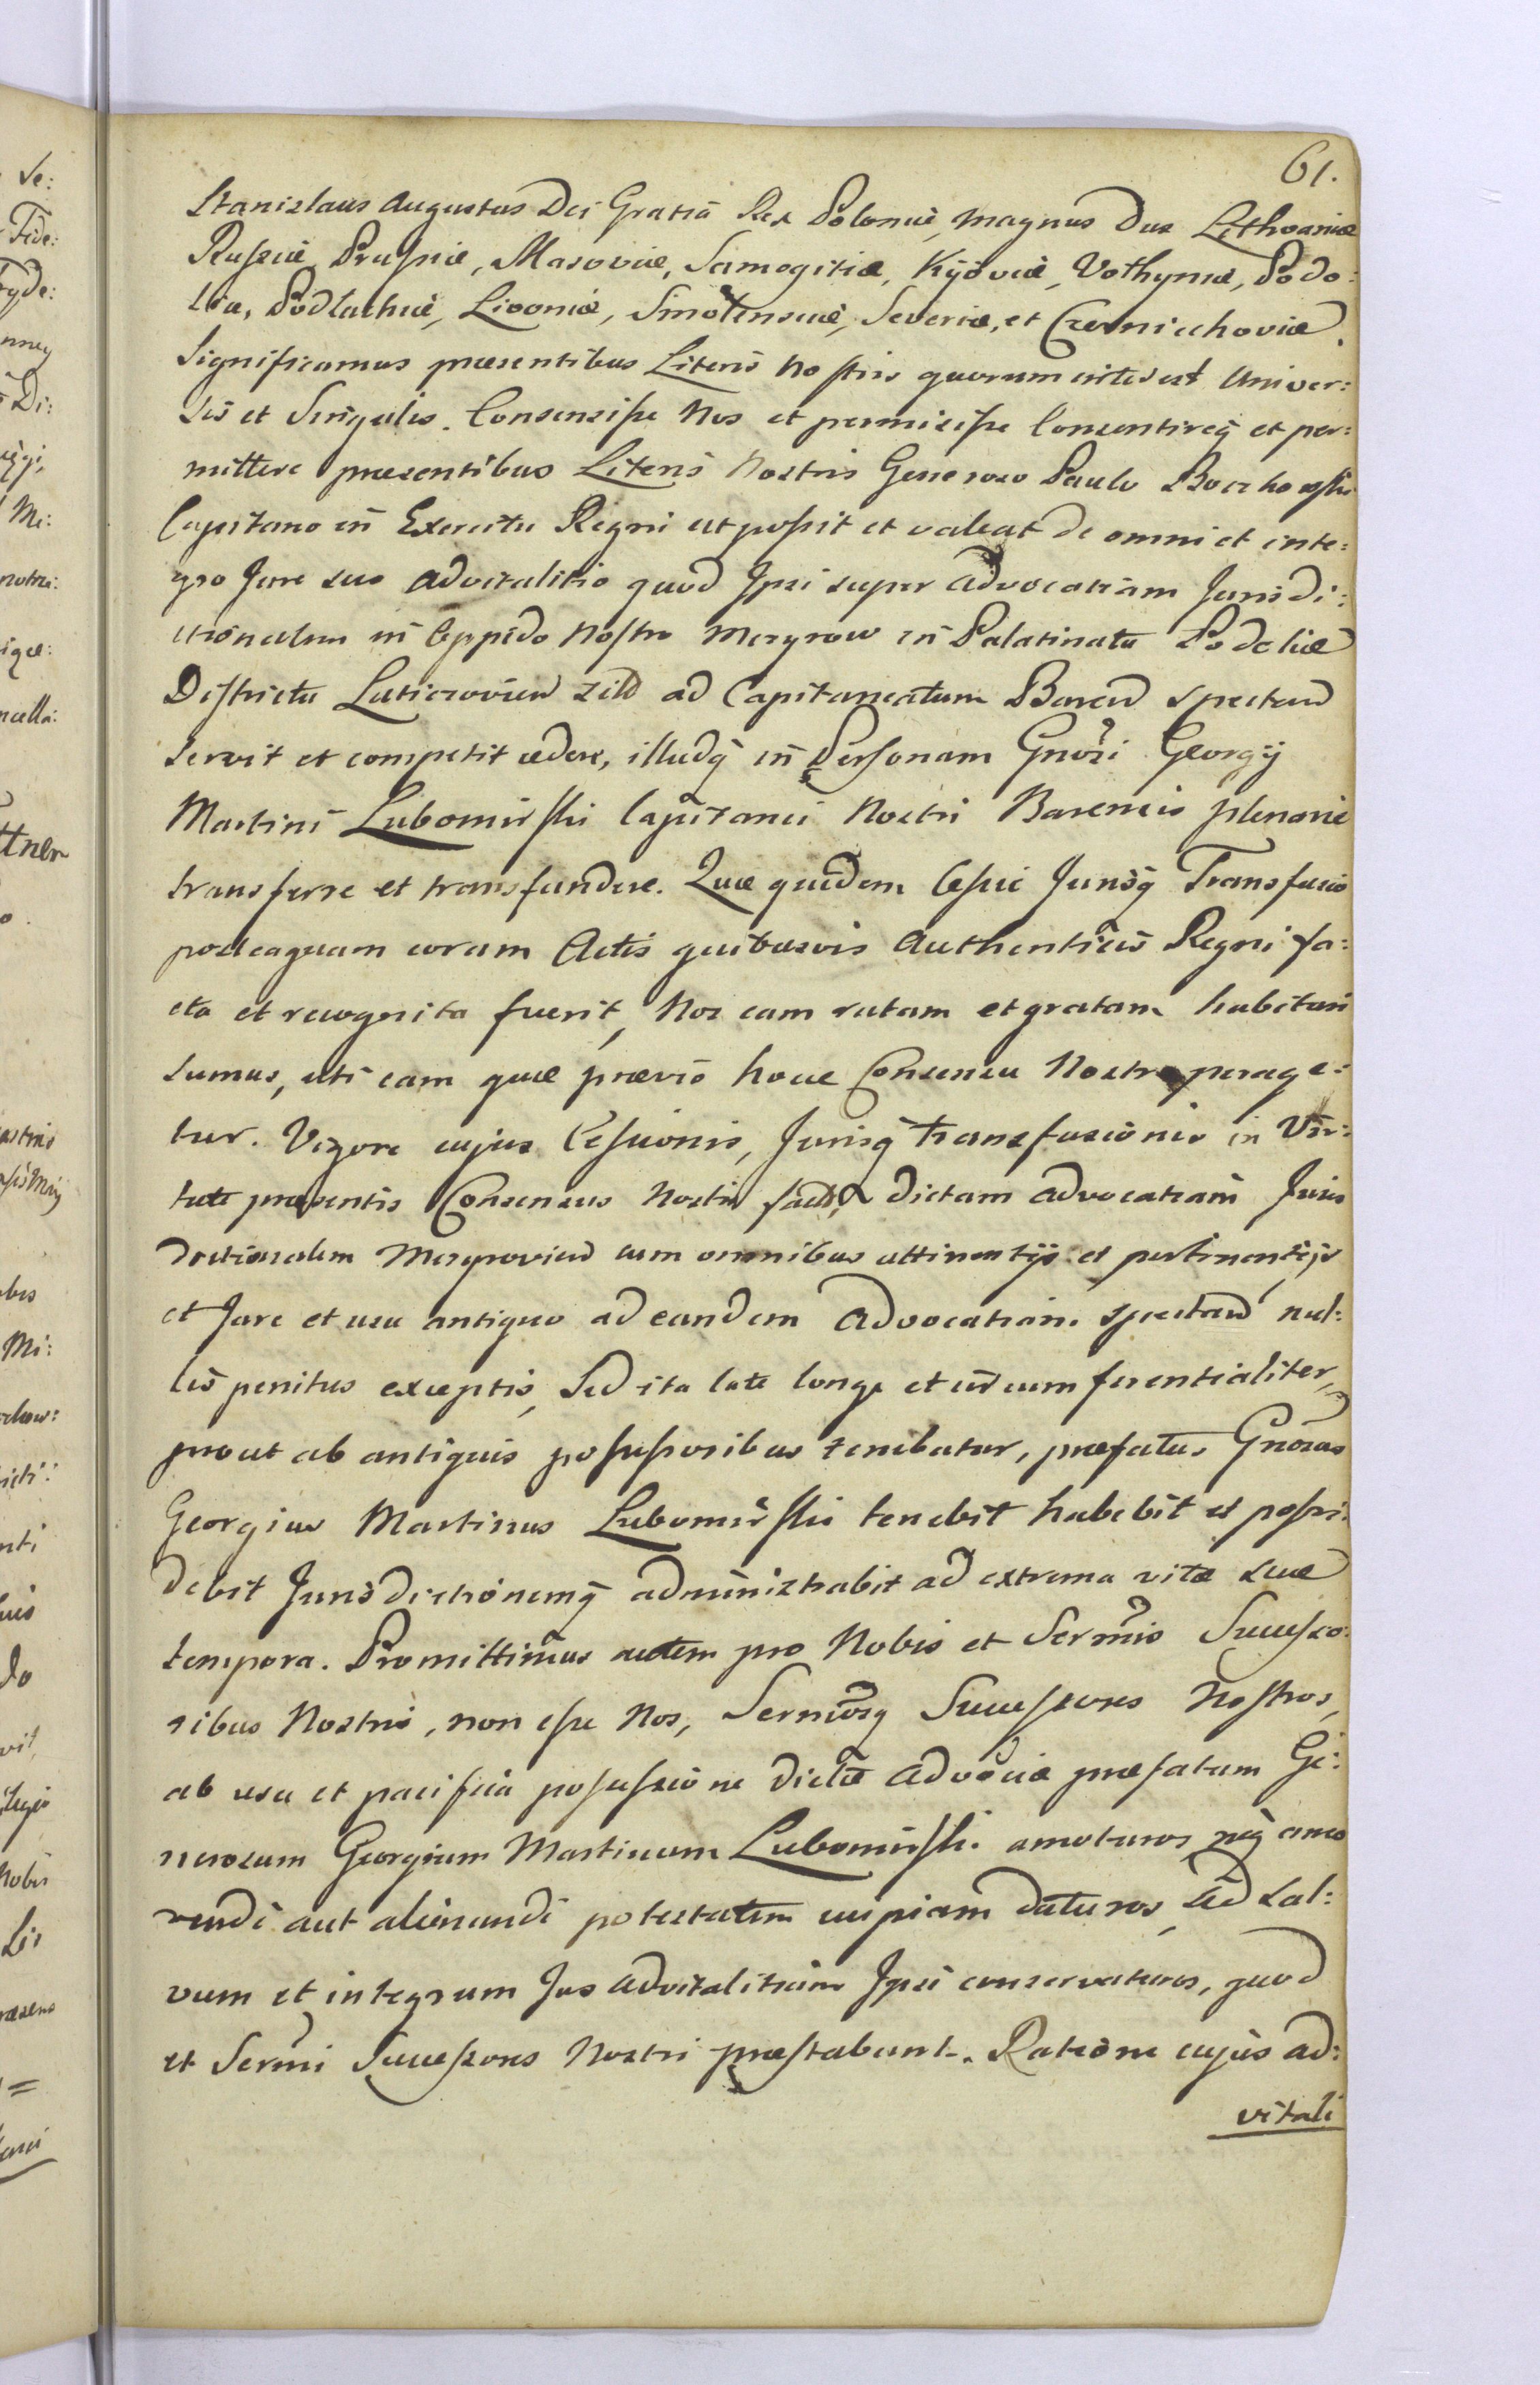 61.
Stanislaus Augustus Dei Gratiâ Rex Poloniæ, Magnus Dux Lithvaniæ
Rußiæ Prußiæ, Masoviæ, Samogitiæ, Kijoviæ, Volhyniæ, Podo:
liæ, Podlachiæ, Livoniæ, Smolensciæ, Severiæ, et Czerniechoviæ.
Significamus præsentibus Literis Nostris quorum interest Univer:
sis et Singulis. Consensiße Nos et permisiße Consentireq̃ et per:
mittere præsentibus Literis Nostris Generoso Paulo
Capitano in Exercitu Regni ut poßit et valeat de omni et inte:
gro Jure suo advitalitio quod Ipsi super advocatiam Jurisdi:
ctionalem in Oppido Nostro Mezyrow in Palatinatu Podoliæ
Districtu Laticzovien sitã ad Capitaneatum Baren spectan
servit et competit cedere, illudq̃ in Personam Gnosi Georgij
Martini Lubomirski Capitanei Nostri Barensis plenarie
transferre et transfundere. Quæ quidem Ceßio Jurisq̃ Transfusio
posteaquam coram Actis quibusvis Authenticis Regni fa:
cta et recognita fuerit, Nos eam ratam et gratam habituri
sumus, uti eam quæ prævio hocce Consensu Nostro perage:
tur. Vigore cujus Ceßionis, Jurisq̃ transfusionis in Vir:
tute præsentis Consensus Nostri dictam advocatiam Juris
dictionalem Mezyrovien cum omnibus attinentijs et pertinentijs
et Jure et usu antiquo ad eandem Advocatiam spectan nul:
lis penitus exceptis, Sed ita late longe et circumferentialiter,
prout ab antiquis poßeßoribus tenebatur, præfatus Gnosus
Georgius Martinus Lubomirski tenebit habebit et poßi:
debit Jurisdictionemq̃ administrabit ad extrema vitæ suæ
tempora. Promittimus autem pro Nobis et Sermis Succeßo:
ribus Nostris, non eße Nos, Sermosq̃ Succeßores Nostros,
ab usu et pacifica poßeßione dictæ advociæ præfatum Ge:
nerosum Georgium Martinum Lubomirski amoturos neq̃ amo
vendi aut alienandi potestatem cuipiam daturos, sed sal:
vum et integrum Jus advitalitium Ipsi conservaturos, quod
et Sermi Succeßores Nostri præstabunt. Ratione cujus ad:
vitali